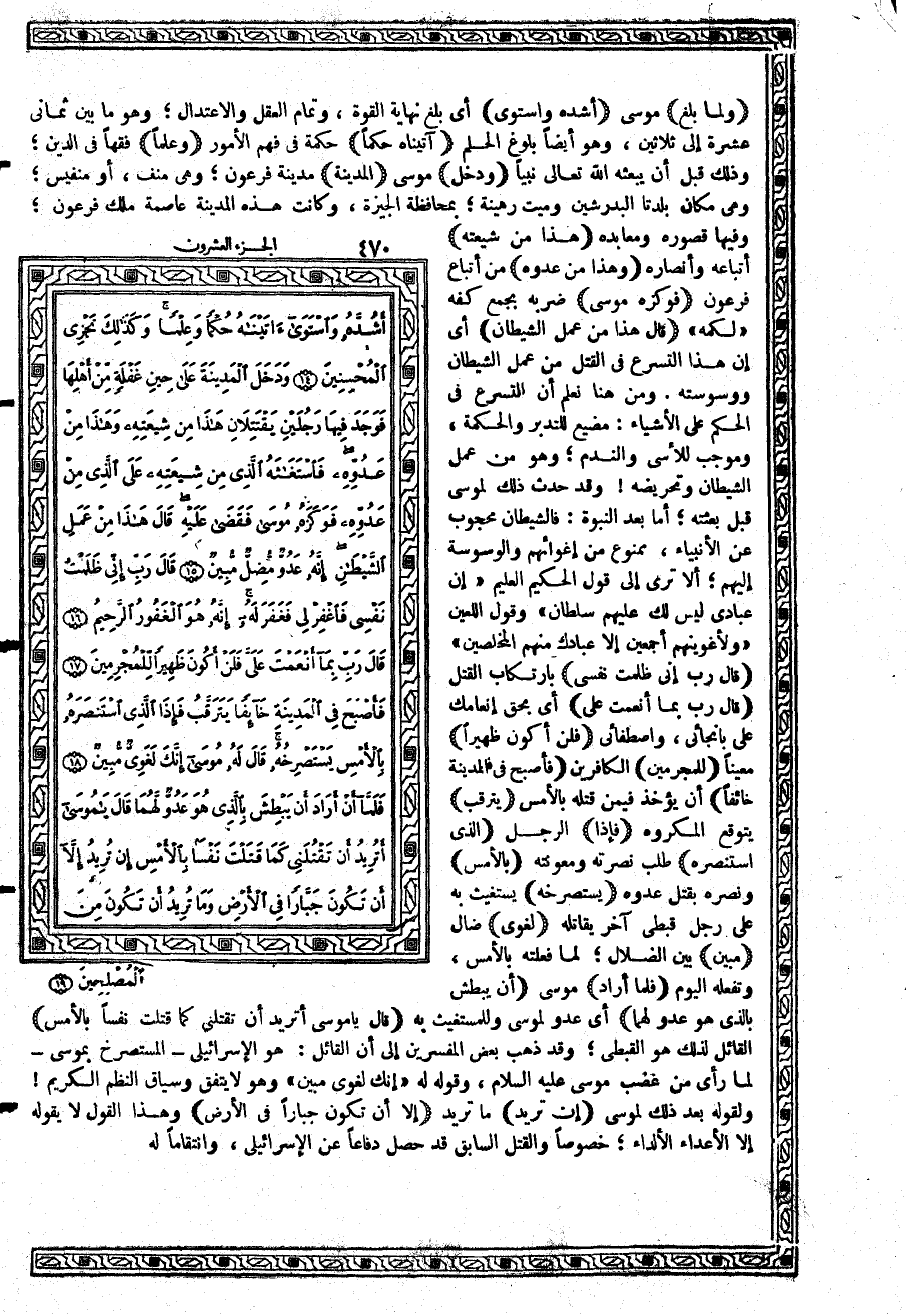 (ولما بلغ) موسى (أشده واستوى) أى بلغ نهاية القوة ، وتمام العقل والاعتدال ؛ وهو ما بين ثمانى
عشرة إلى ثلاثين ، وهو أيضاً بلوغ الحلم (آتيناه حكماً) حكمة فى فهم الأمور (وعلماً) فقهاً فى الدين ؛
وذلك قبل أن يبعثه الله تعالى نبياً (ودخل) موسى (المدينة) مدينة فرعون ؛ وهى منف ، أو منفيس ؛
وهى مكان بلدتا البدرشين وميت رهينة ؛ بمحافظة الجيزة ، وكانت هذه المدينة عاصمة ملك فرعون ؛
وفيها قصوره ومعابده (هذا من شيعته)
أتباعه وأنصاره (وهذا من عدوه) من أتباع
فرعون (فوكزه موسى) ضربه بجمع كفه
«لكمه» (قال هذا من عمل الشيطان) أى
إن هذا التسرع فى القتل من عمل الشيطان
ووسوسته . ومن هنا نعلم أن التسرع فى
الحكم على الأشياء : مضيع للتدبر والحكمة ،
وموجب للأسى والندم ؛ وهو من عمل
الشيطان وتحريضه ! وقد حدث ذلك لموسى
قبل بعثته ؛ أما بعد النبوة : فالشيطان محجوب
عن الأنبياء ، ممنوع من إغوائهم والوسوسة
إليهم ؛ ألا ترى إلى قول الحكيم العليم « إن
عبادى ليس لك عليهم سلطان» وقول اللعين
«ولأغوينهم أجمعين إلا عبادك منهم المخلصين»
(قال رب إنى ظلمت نفسى) بارتكاب القتل
(قال رب بما أنعمت على) أى بحق إنعامك
على بانجائى ، واصطفائى (فلن أكون ظهيراً)
معيناً (للمجرمين) الكافرين (فأصبح فى المدينة
خائفاً) أن يؤخذ فيمن قتله بالأمس (يترقب)
يتوقع المكروه (فإذا) الرجل (الذى
استنصره) طلب نصرته ومعونته (بالأمس)
ونصره بقتل عدوه (يستصرخه) يستغيث به
على رجل قبطى آخر يقاتله (لغوى) ضال
(مبين) بين الضلال ؛ لما فعلته بالأمس ،
وتفعله اليوم (فلما أراد) موسى (أن يبطش
بالذى هو عدو لهما) أى عدو لموسى وللمستغيث به (قال ياموسى أتريد أن تقتلنى كما قتلت نفساً بالأمس)
القائل لذلك هو القبطى ؛ وقد ذهب بعض المفسرين إلى أن القائل : هو الإسرائيلى ــ المستصرخ بموسى ــ
لما رأى من غضب موسى عليه السلام ، وقوله له «إنك لغوى مبين» وهو لايتفق وسياق النظم الكريم !
ولقوله بعد ذلك لموسى (إن تريد) ما تريد (إلا أن تكون جباراً فى الأرض) وهذا القول لا يقوله
إلا الأعداء الألداء ؛ خصوصاً والقتل السابق قد حصل دفاعاً عن الإسرائيلى ، وانتقاماً له
٤٧٠ الجزء العشرون
أَشُدَّهُۥ وَٱسْتَوَىٰٓ ءَاتَيْنَٰهُ حُكْمًا وَعِلْمًا ۚ وَكَذَٰلِكَ نَجْزِى
ٱلْمُحْسِنِينَ ١٤ وَدَخَلَ ٱلْمَدِينَةَ عَلَىٰ حِينِ غَفْلَةٍ مِّنْ أَهْلِهَا
فَوَجَدَ فِيهَا رَجُلَيْنِ يَقْتَتِلَانِ هَٰذَا مِن شِيعَتِهِۦ وَهَٰذَا مِنْ
عَدُوِّهِۦ ۖ فَٱسْتَغَٰثَهُ ٱلَّذِى مِن شِيعَتِهِۦ عَلَى ٱلَّذِى مِنْ
عَدُوِّهِۦ فَوَكَزَهُۥ مُوسَىٰ فَقَضَىٰ عَلَيْهِ ۖ قَالَ هَٰذَا مِنْ عَمَلِ
ٱلشَّيْطَٰنِ ۖ إِنَّهُۥ عَدُوٌّ مُّضِلٌّ مُّبِينٌ ١٥ قَالَ رَبِّ إِنِّى ظَلَمْتُ
نَفْسِى فَٱغْفِرْ لِى فَغَفَرَ لَهُۥٓ ۚ إِنَّهُۥ هُوَ ٱلْغَفُورُ ٱلرَّحِيمُ ١٦
قَالَ رَبِّ بِمَآ أَنْعَمْتَ عَلَىَّ فَلَنْ أَكُونَ ظَهِيرًا لِّلْمُجْرِمِينَ ١٧
فَأَصْبَحَ فِى ٱلْمَدِينَةِ خَآئِفًا يَتَرَقَّبُ فَإِذَا ٱلَّذِى ٱسْتَنصَرَهُۥ
بِٱلْأَمْسِ يَسْتَصْرِخُهُۥ ۚ قَالَ لَهُۥ مُوسَىٰٓ إِنَّكَ لَغَوِىٌّ مُّبِينٌ ١٨
فَلَمَّآ أَنْ أَرَادَ أَن يَبْطِشَ بِٱلَّذِى هُوَ عَدُوٌّ لَّهُمَا قَالَ يَٰمُوسَىٰٓ
أَتُرِيدُ أَن تَقْتُلَنِى كَمَا قَتَلْتَ نَفْسًۢا بِٱلْأَمْسِ ۖ إِن تُرِيدُ إِلَّآ
أَن تَكُونَ جَبَّارًا فِى ٱلْأَرْضِ وَمَا تُرِيدُ أَن تَكُونَ مِنَ
ٱلْمُصْلِحِينَ ١٩